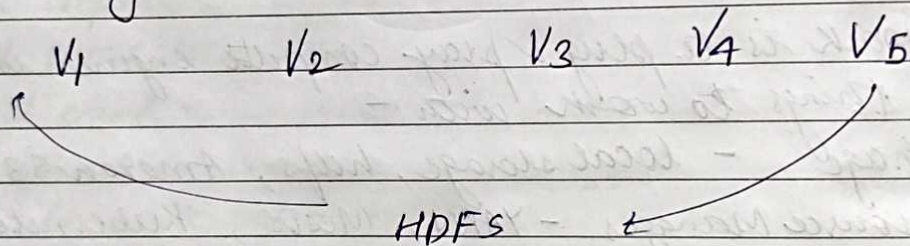 V1 V2 V3 V4 V5
HDFS